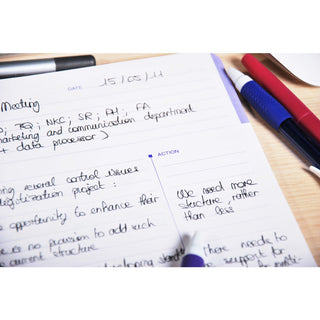 DATE 15/05/11
Meeting
TQ; NKC; SR; AH; FA
marketing and communication department
+ data processor)
ACTION
several control issues
digitization project:
opportunity to enhance their
is no provision to add such
current structure
We need more
structure, rather
than less
there needs to
support for